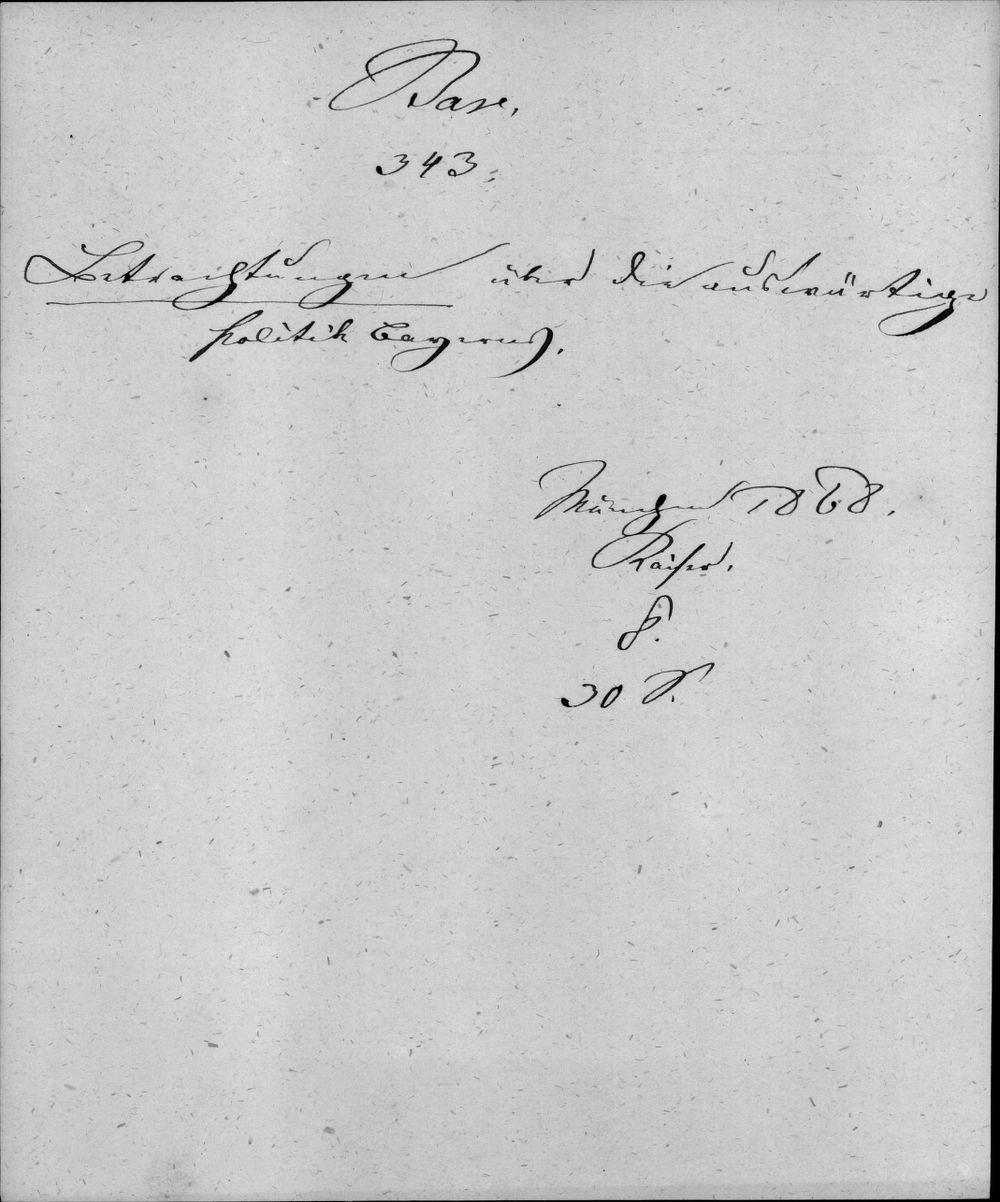 Bavar.
343.
Betrachtungen über die auswärtige
Politik Bayerns.
München 1868.
Kaiser.
8.
30 S.